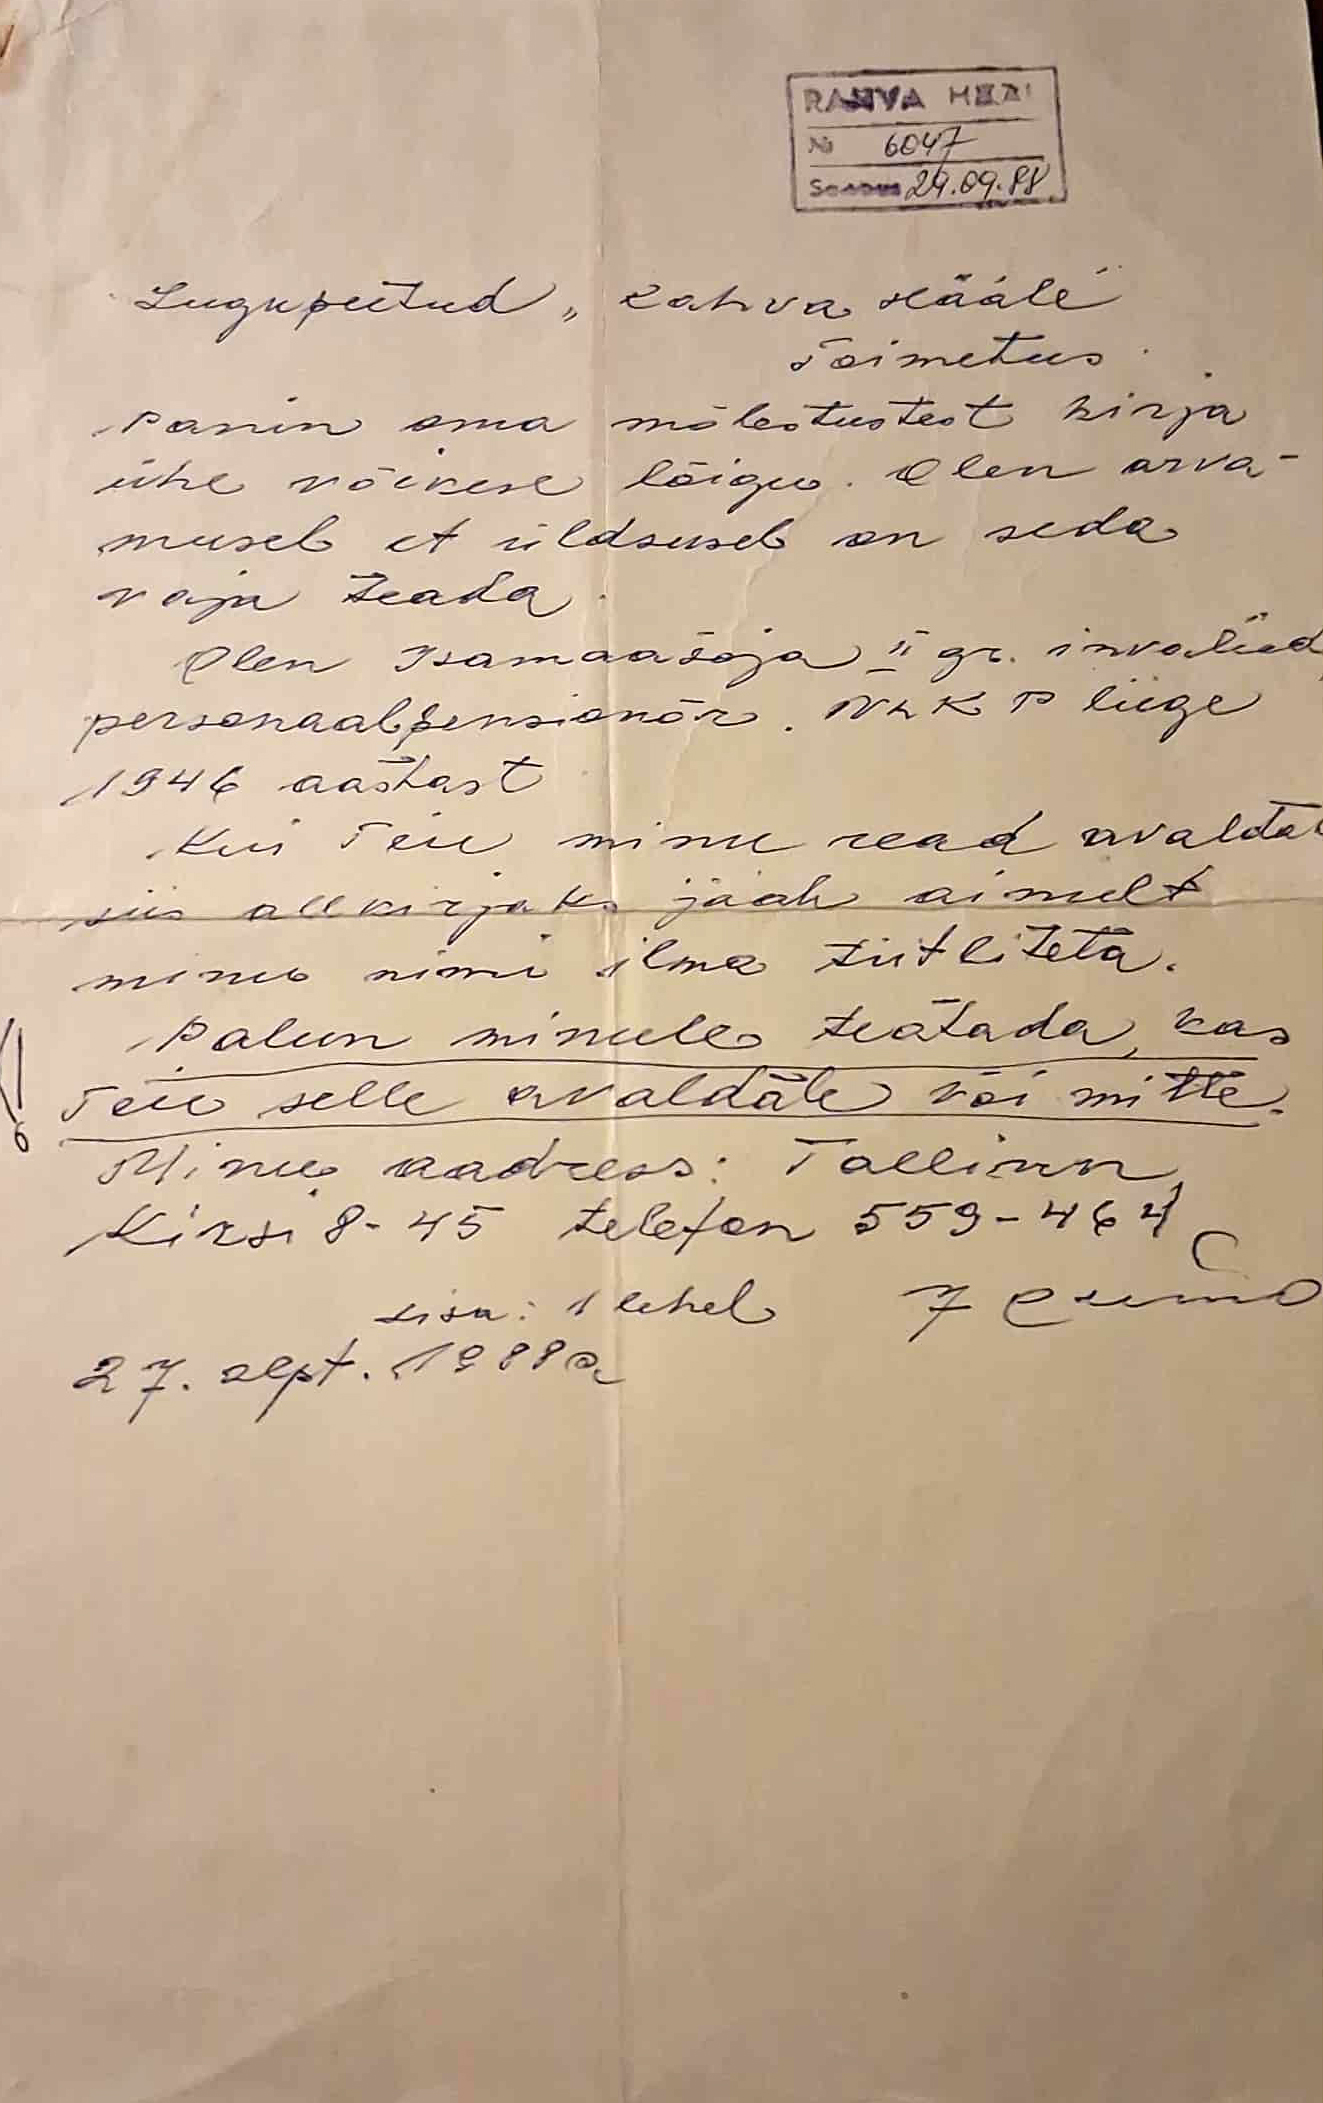 RAHVA HÄÄL
№ 6047
Saadud 29.09.88
Lugupeetud „Rahva Hääle"
Toimetus.
Panin oma mälestustest kirja
ühe väikese lõigu. Olen arva-
musel et üldsusel on seda
vaja teada.
Olen Isamaasõja II gr. invaliid,
personaalpensionär. NLKP liige
1946 aastast
Kui Teie minu read avaldat
siis allkirjaks jääb ainult
minu nimi ilma tiitliteta.
Palun minule teatada, kas
Teie selle avaldate või mitte.
Minu aadress: Tallinn
Kirsi 8-45 telefon 559-464
Lisa: 1 lehel
27. sept. 1988a